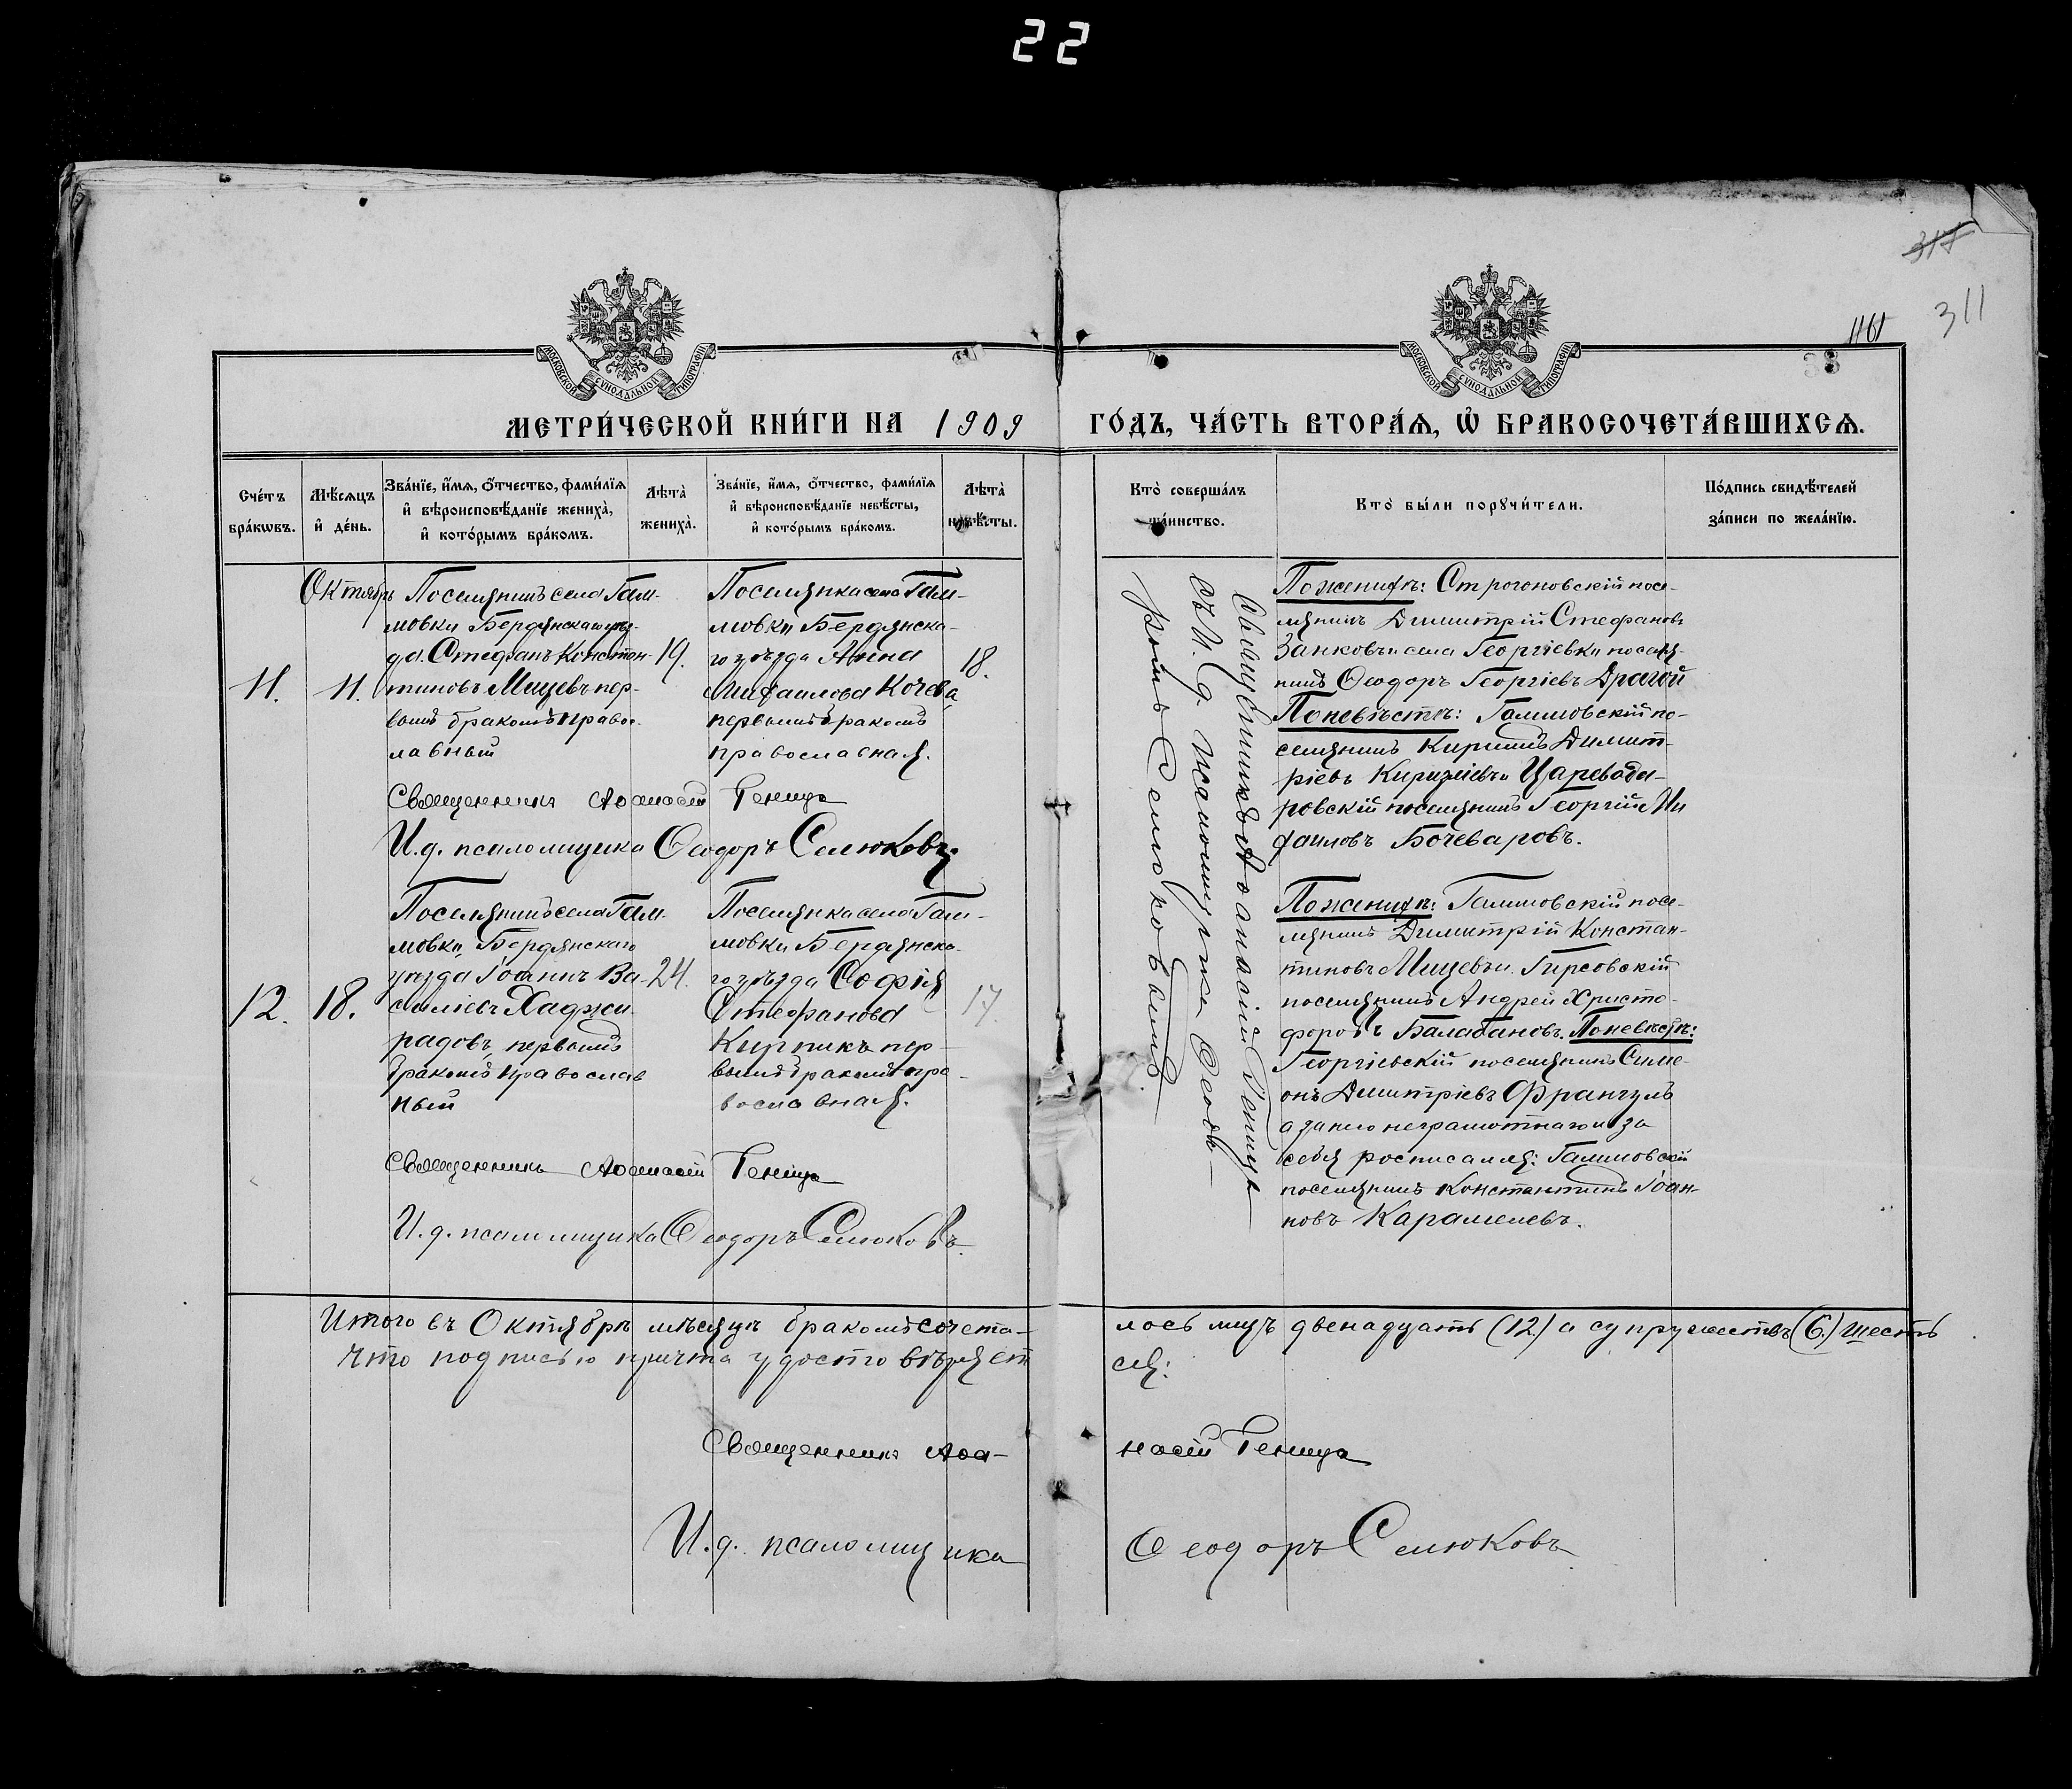 22
317
311
1161
33
МОСКОВСКОЙ СѴНОДАЛЬНОЙ ТИПОГРАФІИ
МОСКОВСКОЙ СѴНОДАЛЬНОЙ ТИПОГРАФІИ
МЕТРИ́ЧЕСКОЙ КНИ́ГИ НА 1909 ГО́ДЪ, ЧА́СТЬ ВТОРА́Ѧ, Ѽ БРАКОСОЧЕТА́ВШИХСѦ.
Сче́тъ бра́кѡвъ.
Мѣ́сѧцъ и҆ де́нь.
Зва́нїе, и҆́мѧ, ѻ҆́тчество, фами́лїѧ
и҆ вѣроисповѣ́данїе жениха̀,
и҆ кото́рымъ бра́комъ.
Лѣта̀ жениха̀.
Зва́нїе, и҆́мѧ, ѻ҆́тчество, фами́лїѧ
и҆ вѣроисповѣ́данїе невѣ́сты,
и҆ кото́рымъ бра́комъ.
Лѣта̀ невѣ́сты.
Кто̀ соверша́лъ та́инство.
Кто̀ бы́ли порꙋчи́тели.
По́дпись свидѣ́телей
за́писи по жела́нїю.
Октябрь
11.
11.
Поселянинъ села Гам-
мовки Бердянскаго уѣз-
да Стефанъ Констан-
тиновъ Мицевъ пер-
вымъ бракомъ правос-
лавный
19.
Поселянка села Гам-
мовки Бердянска-
го уѣзда Анна
Михаилова Кочева,
первымъ бракомъ
православная.
18.
Священникъ Аѳанасій Геница
И.д. псаломщика Ѳеодоръ Селюковъ.
Священникъ Аѳанасій Геница
съ И. д. псаломщика Ѳеодо-
ромъ Селюковымъ.
По женихѣ: Строгоновскій посе-
лянинъ Димитрій Стефановъ
Занковъ и села Георгіевки поселя-
нинъ Ѳеодоръ Георгіевъ Драгой
По невѣстѣ: Гаммовскій по-
селянинъ Кириллъ Димит-
ріевъ Кириліевъ и Царевода-
ровскій поселянинъ Георгій Ми
хаиловъ Бочеваровъ.
12.
18.
Поселянинъ села Гам-
мовки, Бердянскаго
уѣзда Іоаннъ Ва-
силіевъ Хаджи
радовъ, первымъ
бракомъ православ
ный
24.
Поселянка села Гам-
мовки Бердянска-
го уѣзда Софія
Стефанова
Кирпикъ пер-
вымъ бракомъ пра-
вославная.
17.
Священникъ Аѳанасій Геница
И.д. псаломщика Ѳеодоръ Селюковъ.
По женихѣ: Гаммовскій посе-
лянинъ Димитрій Констан-
тиновъ Мицевъ и Гирсовскій
поселянинъ Андрей Христо-
форовъ Балабановъ. По невѣстѣ:
Георгіевскій поселянинъ Симе-
онъ Димитріевъ Франгулъ
а за него неграмотнаго и за
себя росписался: Гаммовскій
поселянинъ Константинъ Іоан-
новъ Карамелевъ.
Итого въ Октябрѣ мѣсяцѣ бракомъ сочета- лось лицъ двенадцать (12) а супружествъ (6.) шесть
Что подписью причта удостовѣряет ся:
Священникъ Аѳа- насій Геница
И.д. псаломщика Ѳеодоръ Селюковъ